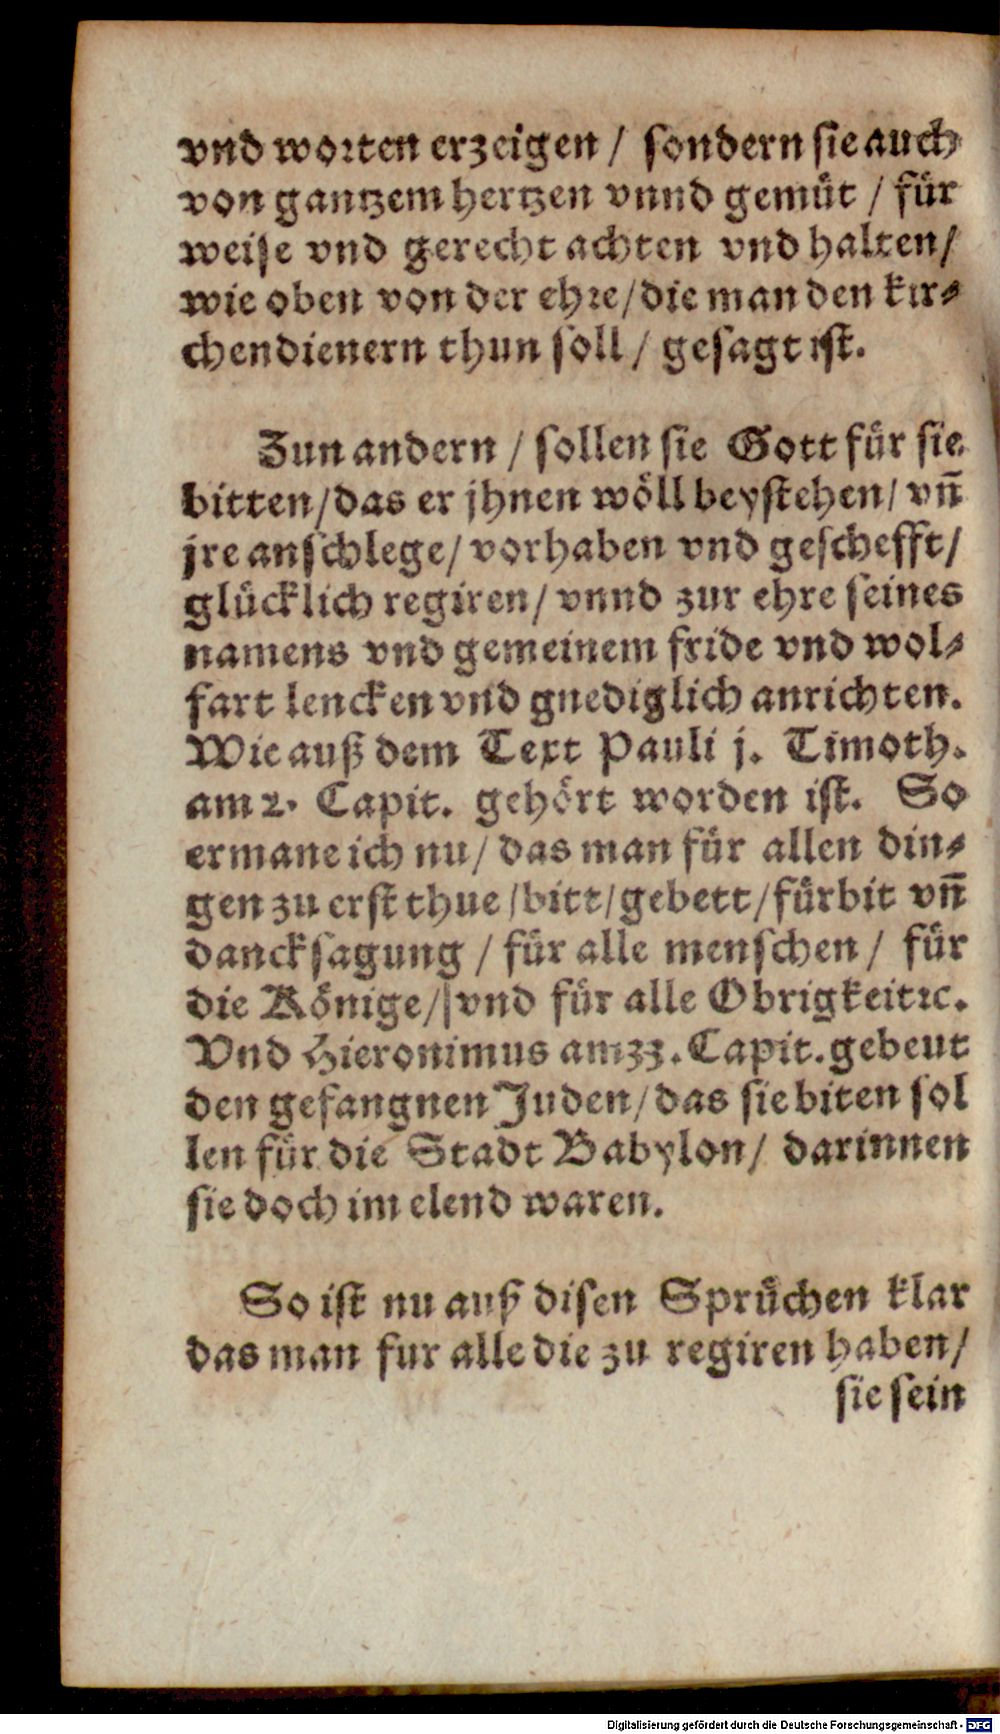 vnd worten erzeigen / sondern sie auch
von gantzem hertzen vnnd gemüt / für
weise vnd gerecht achten vnd halten/
wie oben von der ehre/die man den kir-
chendienern thun soll / gesagt ist.
Zun andern / sollen sie Gott für sie
bitten/das er jhnen wöll beystehen/ vñ
jre anschlege/ vorhaben vnd geschefft/
glücklich regiren/ vnnd zur ehre seines
namens vnd gemeinem fride vnd wol-
fart lencken vnd gnediglich anrichten.
Wie auß dem Text Pauli j. Timoth.
am 2. Capit. gehört worden ist. So
ermane ich nu/ das man für allen din-
gen zu erst thue /bitt/gebett/fürbit vñ
dancksagung / für alle menschen / für
die Könige/ vnd für alle Obrigkeit ꝛc.
Vnd Hieronimus am 33. Capit. gebeut
den gefangnen Juden/das sie biten sol
len für die Stadt Babylon/ darinnen
sie doch im elend waren.
So ist nu auß disen Sprüchen klar
das man fur alle die zu regiren haben/
sie sein
Digitalisierung gefördert durch die Deutsche Forschungsgemeinschaft - DFG